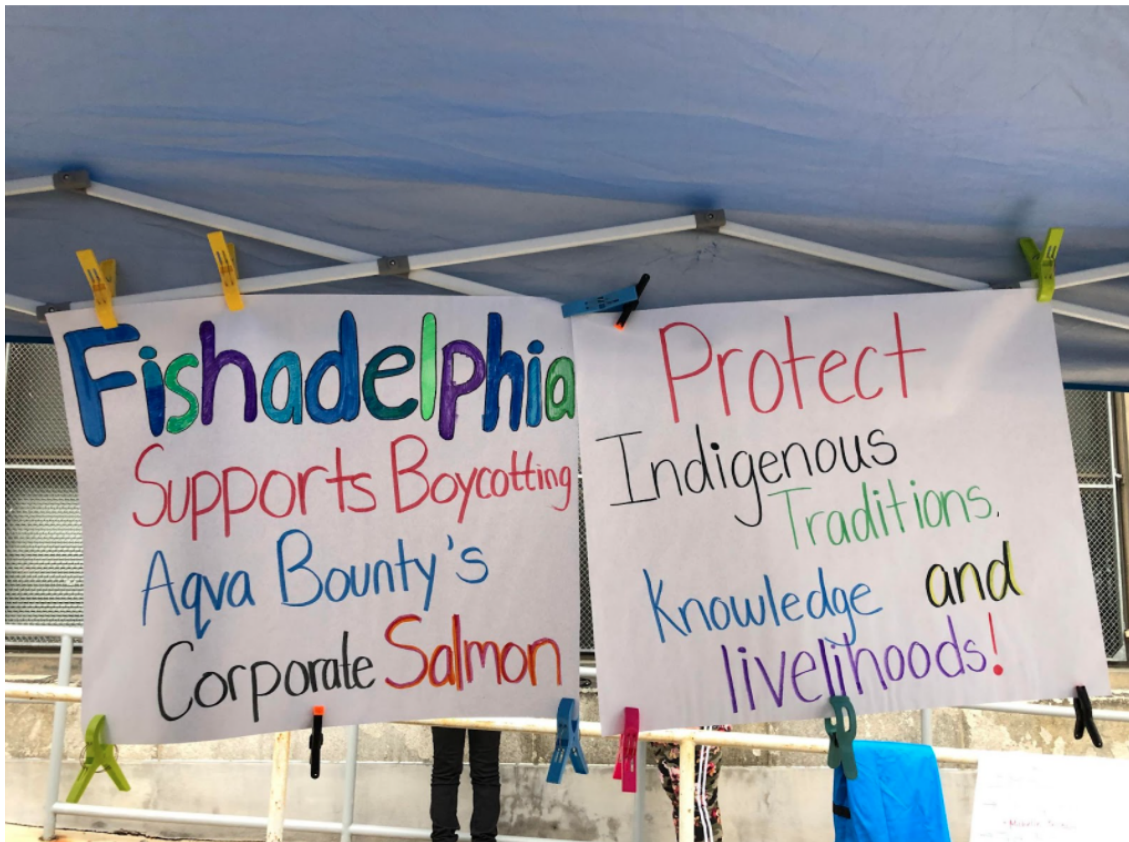 Fishadelphia
Supports Boycotting
Aqva Bounty's
Corporate Salmon
Protect
Indigenous
Traditions,
Knowledge and
livelihoods!